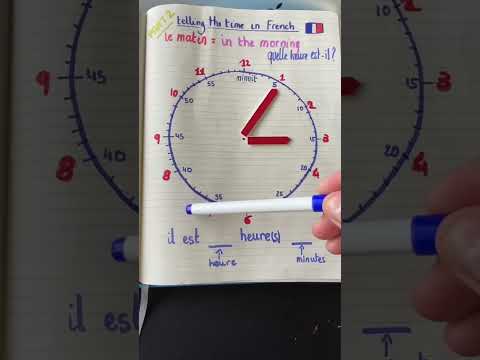 PART 2
telling the time in French
le matin = in the morning
quelle heure est-il?
12
11 1
55 minuit 5
10 50 10 2
9 45 15 3
8 40 20 4
35 25
6
il est __ heure(s) __
heure minutes
9 45 15 3
8 40 20 4
il est